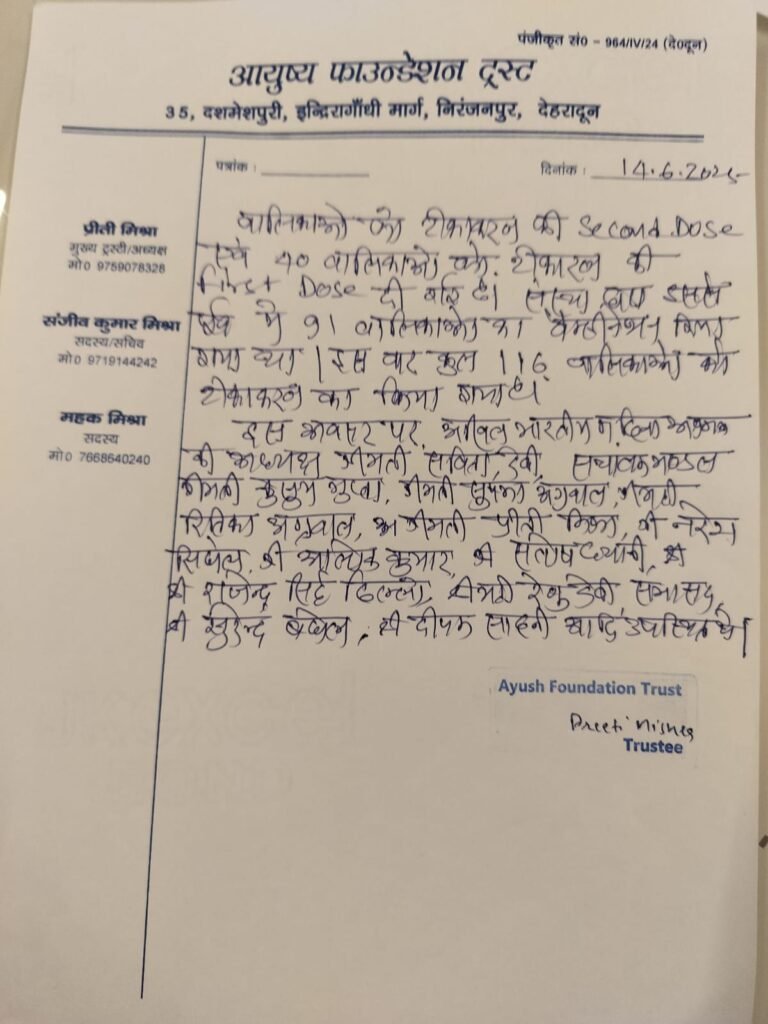 पंजीकृत सं0 - 964/IV/24 (दे0दून)
आयुष्य फाउन्डेशन ट्रस्ट
35, दशमेशपुरी, इन्दिरागाँधी मार्ग, निरंजनपुर, देहरादून
पत्रांक :
दिनांक : 14.6.2025
प्रीती मिश्रा
मुख्य ट्रस्टी/अध्यक्ष
मो0 9759078328
संजीव कुमार मिश्रा
सदस्य/सचिव
मो0 9719144242
महक मिश्रा
सदस्य
मो0 7668640240
बालिकाओ को टीकाकरन की Second Dose
एवं 40 बालिकाओ को टीकारन की
First Dose दी गई है। संस्था द्वारा इससे
पूर्व मे 91 बालिकाओ का किया
गया था। इस बार कुल 116 बालिकाओ को
टीकाकरन का किया गया है।
इस अवसर पर भारतीय महिला
की अध्यक्ष श्रीमती सविता देवी,
श्रीमती कुसुम गुप्ता, श्रीमती अग्रवाल, श्रीमती
रितिका अग्रवाल, श्रीमती प्रीती मिश्रा, श्री नरेश
श्री कुमार, श्री श्री
श्री राजेन्द्र सिंह ढिल्लो, श्रीमती रेनु देवी, सभासद,
श्री बघेल, श्री दीपक साहनी आदि उपस्थित थे।
Ayush Foundation Trust
Preeti Mishra
Trustee